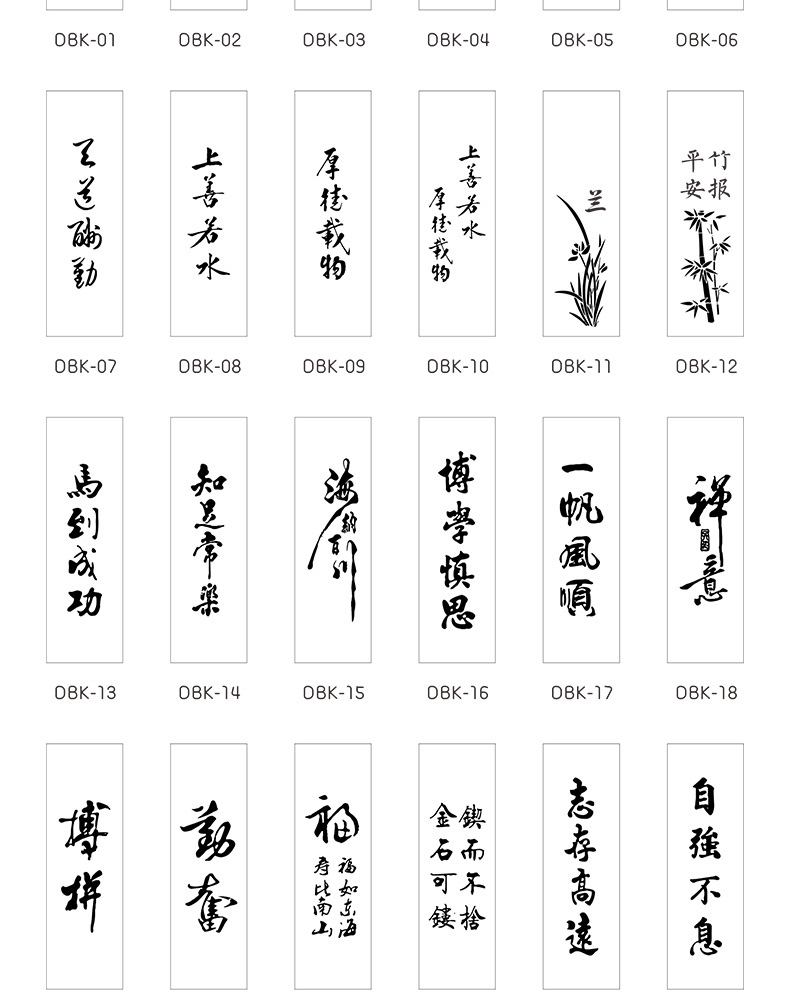 OBK-01 OBK-02 OBK-03 OBK-04 OBK-05 OBK-06
天道酬勤
上善若水
厚德载物
上善若水
厚德载物
兰
竹报
平安
OBK-07 OBK-08 OBK-09 OBK-10 OBK-11 OBK-12
馬到成功
知足常樂
海納百川
博學慎思
一帆風順
禪意
OBK-13 OBK-14 OBK-15 OBK-16 OBK-17 OBK-18
搏拼
勤奮
福
福如东海
寿比南山
鍥而不捨
金石可鏤
志存高遠
自強不息